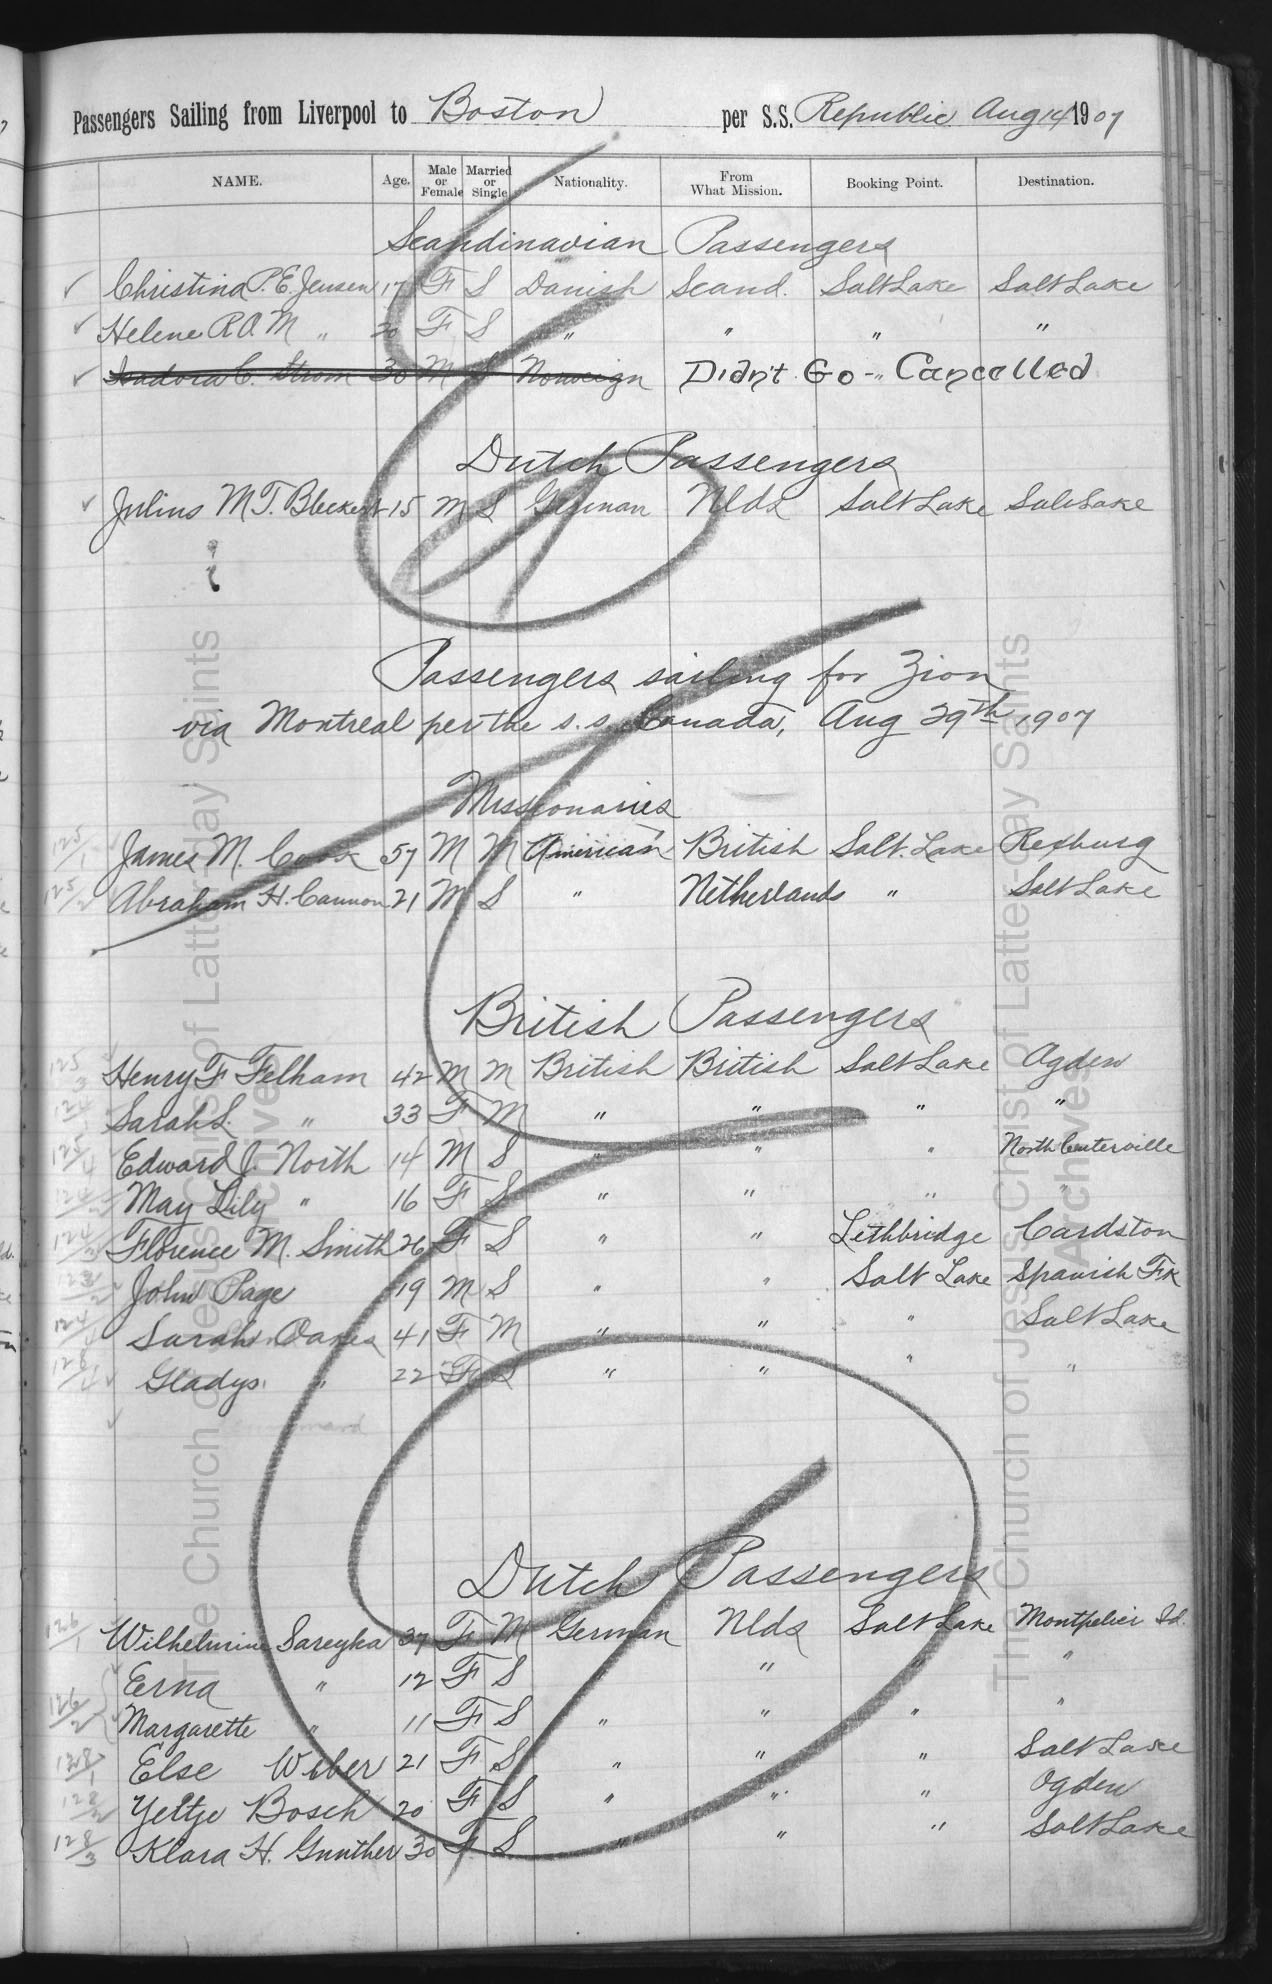 Passengers Sailing from Liverpool to Boston per S.S. Republic Aug 14 1907
NAME. Age. Male or Female Married or Single Nationality. From What Mission. Booking Point. Destination.
Scandinavian Passengers
Christina P.E. Jensen 17 F S Danish Scand. Salt Lake Salt Lake
Helene R.O.M " 20 F S " " " "
Isadora C. Strom 30 M S Norweign Didn't Go - " Cancelled
Dutch Passengers
Julius M.T. Bleekert 15 M S German Nlds Salt Lake Salt Lake
Passengers sailing for Zion
via Montreal per the s.s. Canada, Aug 29th 1907
Missionaries
125/1 James M. Cook 57 M M American British Salt Lake Rexburg
125/2 Abraham H. Cannon 21 M S " Netherlands " Salt Lake
British Passengers
125/3 Henry F Felham 42 M M British British Salt Lake Ogden
124/2 Sarah S. " 33 F M " " " "
125/4 Edward J. North 14 M S " " " North Centerville
124/2 May Lily " 16 F S " " " "
124/3 Florence M. Smith 26 F S " " Lethbridge Cardston
123/2 John Page 19 M S " " Salt Lake Spanish Fk
124/4 Sarah Oakes 41 F M " " " Salt Lake
128/4 Gladys " 22 F S " " " "
Dutch Passengers
126/1 Wilhelmine Sareyka 37 F M German Nlds Salt Lake Montpelier Id.
Erna " 12 F S " " "
126/2 Margarette " 11 F S " " " "
128/1 Else Weber 21 F S " " " Salt Lake
128/2 Yeltje Bosch 20 F S " " " Ogden
128/3 Klara H. Gunther 30 F S " " " Salt Lake
The Church of Jesus Christ of Latter-day Saints
Archives
The Church of Jesus Christ of Latter-day Saints
Archives